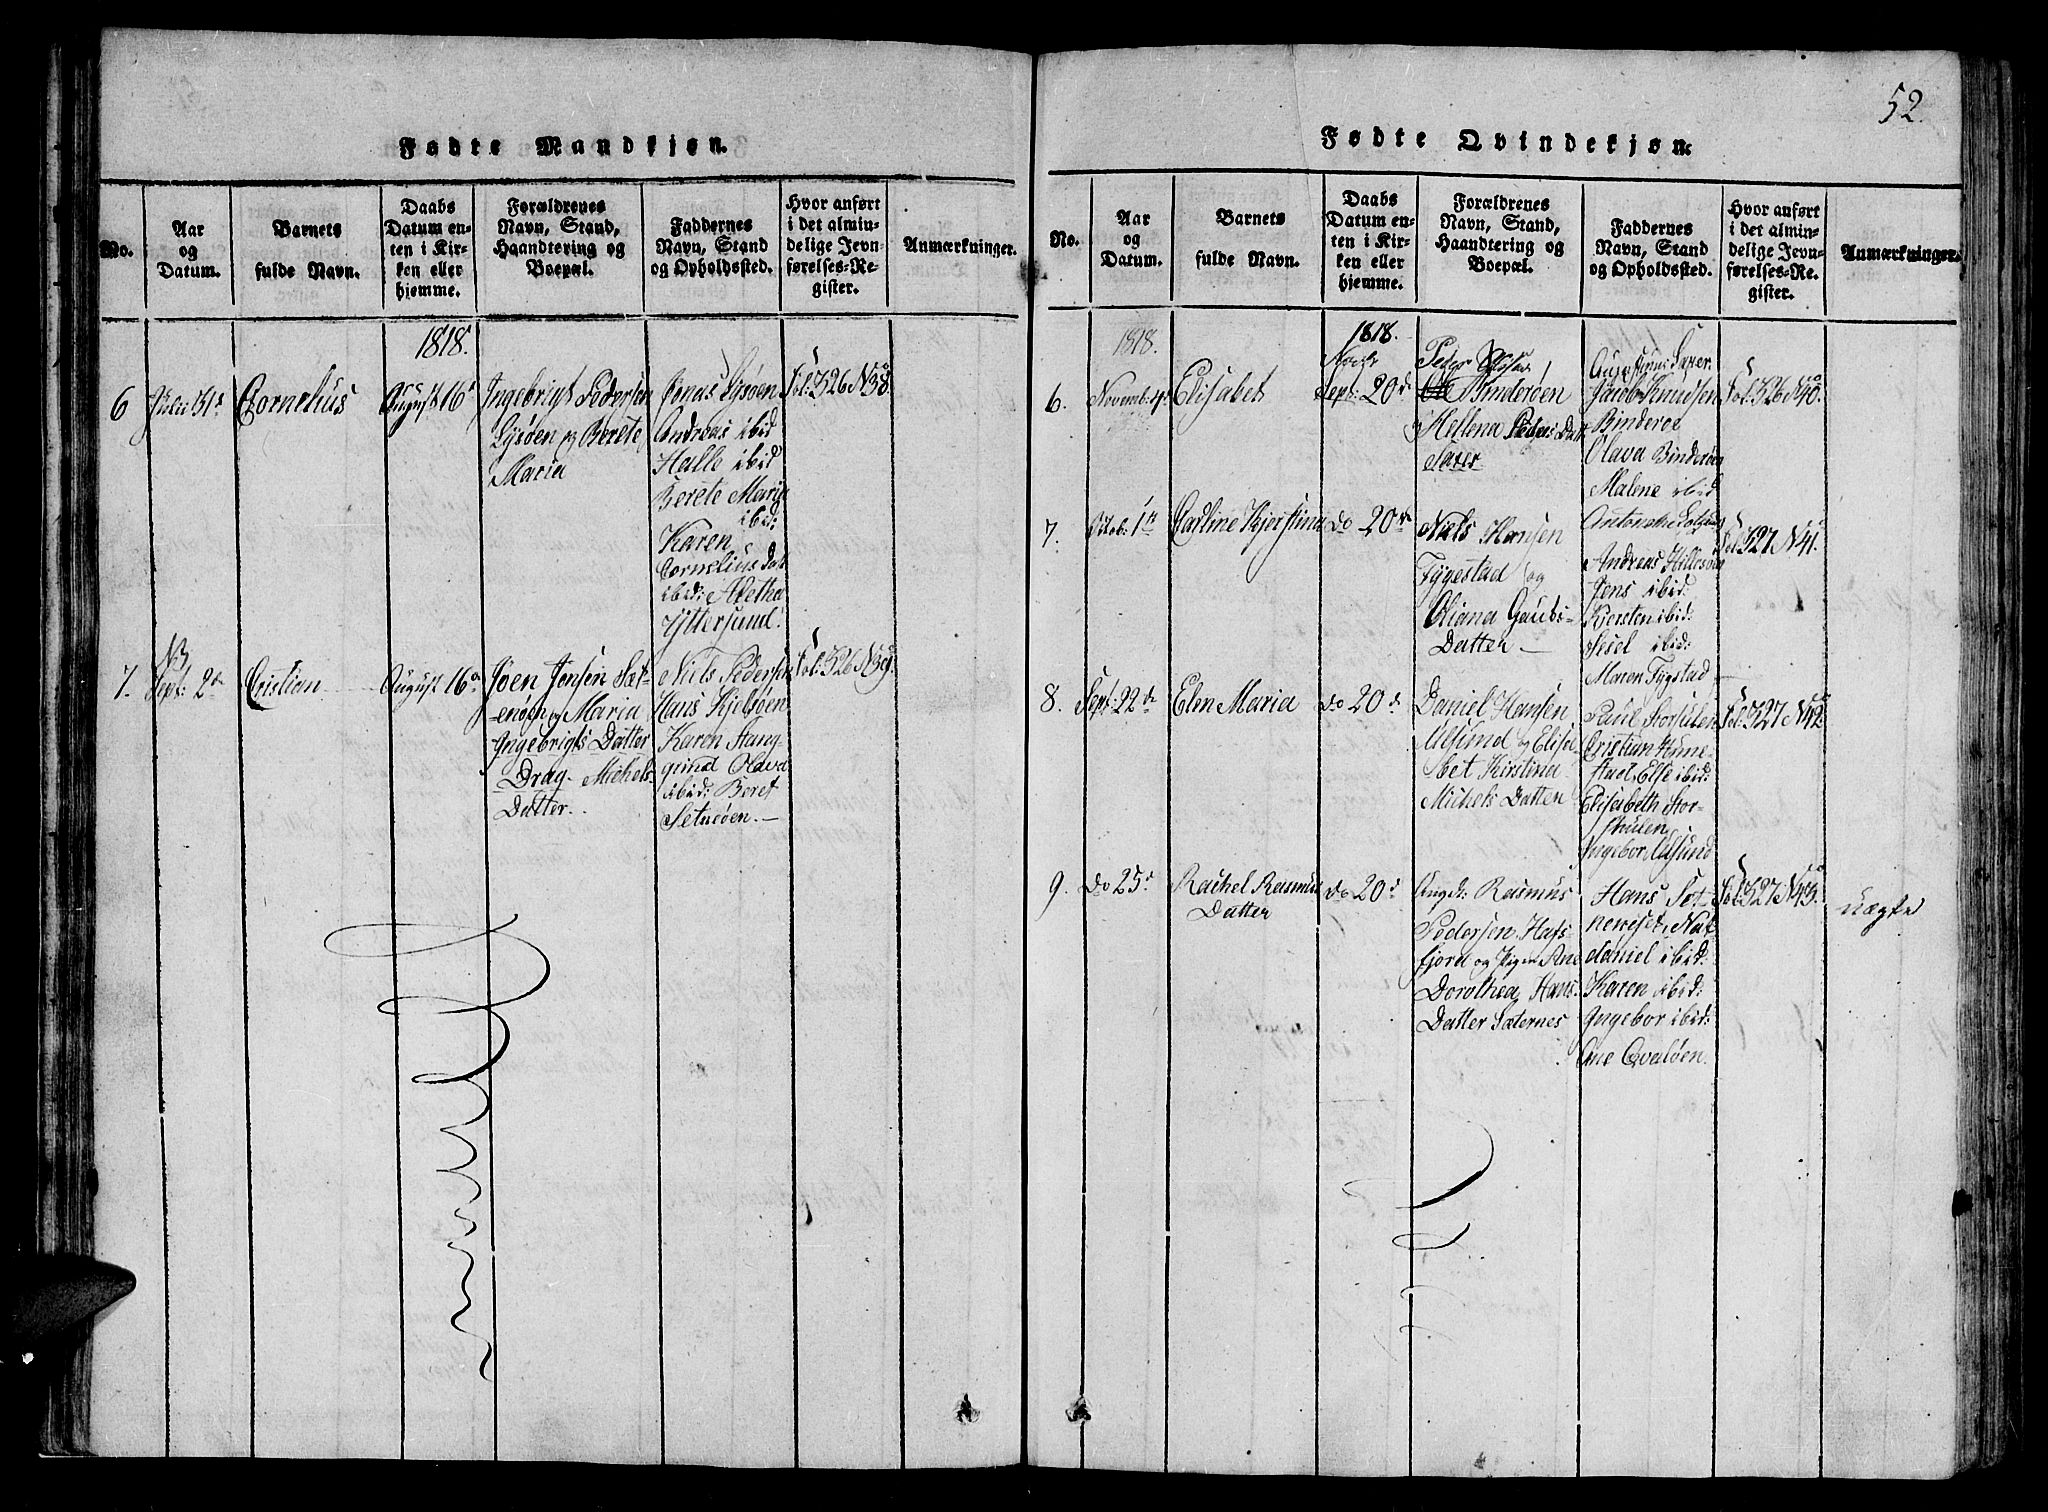 52.
Fødte Mandkjøn.
No.
Aar
og
Datum.
Barnets
fulde Navn.
Daabs
Datum en-
ten i Kir-
ken eller
hjemme.
Forældrenes
Navn, Stand,
Haandtering og
Boepæl.
Faddernes
Navn, Stand
og Opholdssted.
Hvor anført
i det almin-
delige Jevn-
førelses-Re-
gister.
Anmærkninger.
1818.
6
Julii 31
Cornelius
August 16
Ingebrigt Pedersen
Lysøen og Berete
Maria
Jonas Lysøen
Andreas ibid
Halle ibid
Berete Maria
ibid:
Karen
Cornelius Dat
ibid: Aletha
Yttersund.
Fol: 326 N 38
7.
Sept: 2
Cristian
August 16
Joen Jensen Sæt-
enøen og Maria
Ingebrigts Datter
Drag- Michels
Datter.
Niels Pedersen
Hans Kjelsøen
Karen Stang-
grind Olava
ibid: Beret
Setneøen.
Fol: 326 N 39.
Fødte Qvindekjøn.
No.
Aar
og
Datum.
Barnets
fulde Navn.
Daabs
Datum en-
ten i Kir-
ken eller
hjemme.
Forældrenes
Navn, Stand,
Haandtering og
Boepæl.
Faddernes
Navn, Stand
og Opholdssted.
Hvor anført
i det almin-
delige Jevn-
førelses-Re-
gister.
Anmærkninger.
1818.
1818.
6.
Novemb: 4
Elisabet
Sept: 20
Peder
Binderøen
Hellena Peders Datt
Jacob Knudsen
Binderoe
Olava Binderøen
Malene ibid
Fol: 326 N 40.
7.
Octob: 1
Carline Kjerstina
do 20
Niels Hansen
Tygestad og
Oliana Gauts-
Datter
Andreas Hillesøen
Jens ibid:
Kersten ibid:
Sesel ibid:
Maren Tygstad
Fol: 327 N 41.
8.
Sept: 22
Elen Maria
do 20
Daniel Hansen
Ulsund og Elisa
bet Kirstina
Michels Datter
Paul Storhulen
Cristian Hune-
stad, Else ibid:
Elisabeth Stor-
hulen
Ingebor Ulsund
Fol: 327 N 42.
9.
do 25
Rachel Rasmus
Datter
do 20
Ung k: Rasmus
Pedersen Hafs-
fjord og Pigen Ane
Dorothea Hans
Datter Sæternes
Hans Set-
neriset, Nat
daniel ibid:
Karen ibid:
Ingebor ibid:
Ane Qvaløen.
Fol: 327 N 43.
uægte